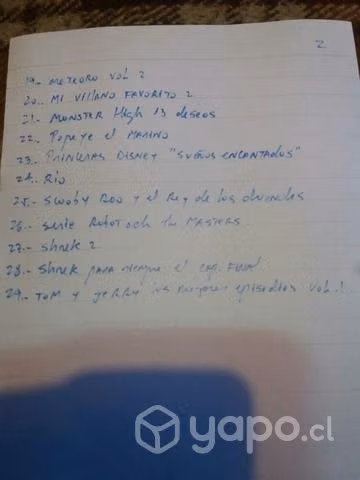 2
19.- METEORO VOL 2
20.- MI VILLANO FAVORITO 2
21.- MONSTER High 13 deseos
22.- Popeye el MARINO
23.- PRINCESAS DISNEY "SUEÑOS ENCANTADOS"
24.- Rio
25.- SCOOBY DOO y el Rey de los duendes
26.- serie ROBOTECH the MASTERS
27.- Shrek 2
28.- Shrek para siempre el cap. FINAL
29.- TOM y JERRY los mejores episodios VOL. 1
yapo.cl